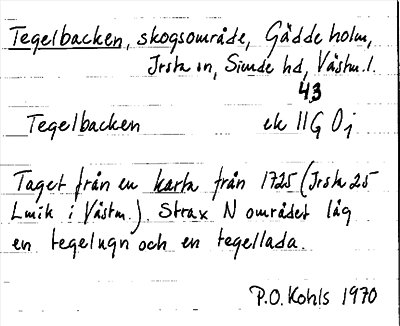 Tegelbacken, skogsområde, Gäddeholm,
Irsta sn, Siende hd, Västm.l.
43
Tegelbacken ek 11G 0j
Taget från en karta från 1725 (Irsta 25
Lmik i Västm.). Strax N området låg
en tegelugn och en tegellada.
P.O. Kohls 1970